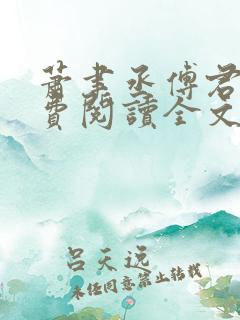 萧书丞傅君
费阅读全文
吕天逸
未经同意禁止转载